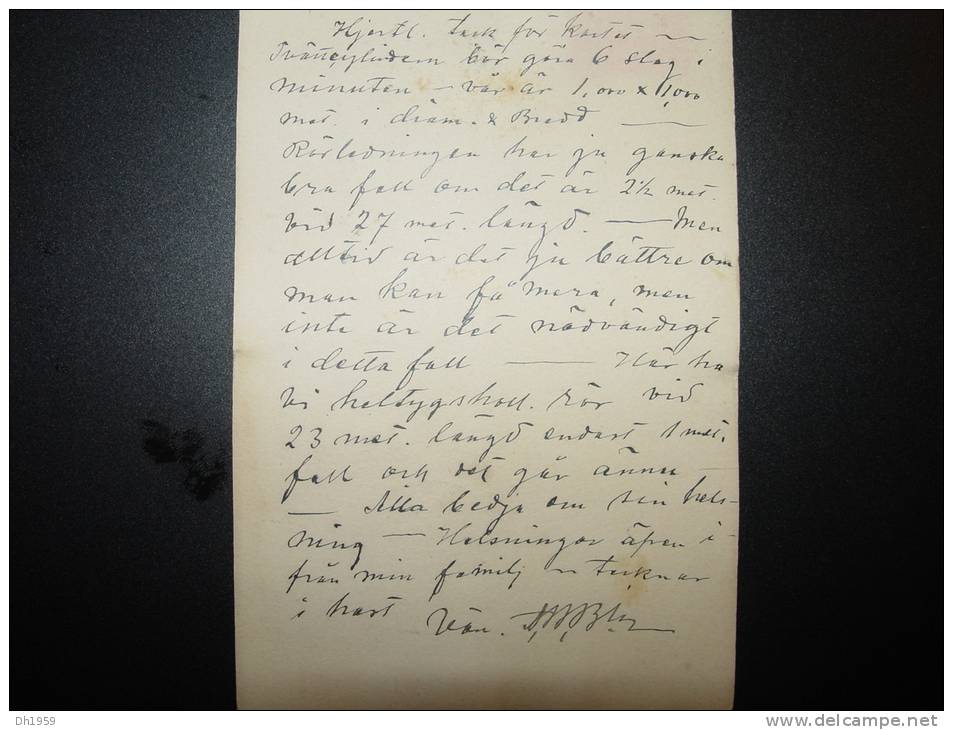 Hjertl. tack för kortet —
Tvättcylindern bör göra 6 slag i
minuten — vår är 1,000 x 1,000
met. i diam. & Bredd —
Rörledningen har ju ganska
bra fall om det är 2½ met.
vid 27 met. längd. — Men
alltid är det ju bättre om
man kan få mera, men
inte är det nödvändigt
i detta fall — Här ha
vi heltygsholl. rör vid
23 met. längd endast 1 met.
fall och det går ännu —
— Alla bedja om sin hels-
ning — Helsningar äfven i-
från min familj — tecknar
i hast Vän.
Dh1959
www.delcampe.net